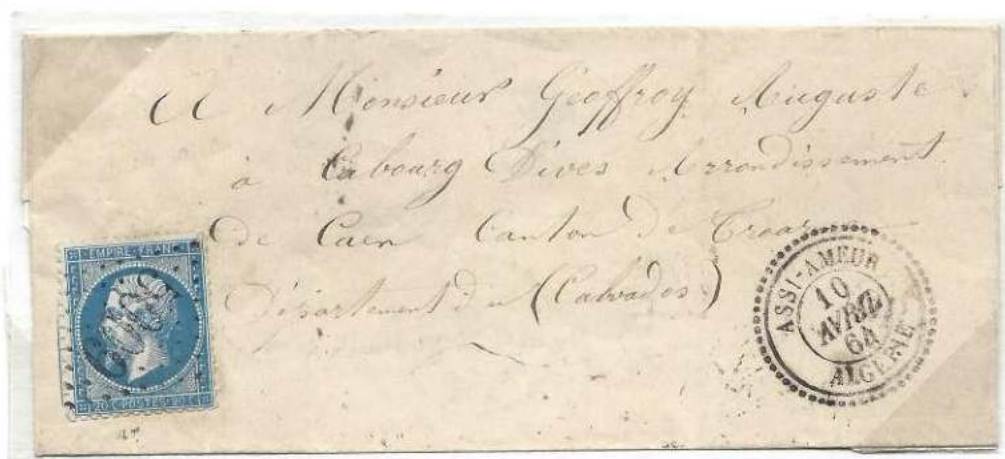 A Monsieur Geoffroy Auguste
à Cabourg Dives Arrondissement
de Caen Canton de Troarn
Département du (Calvados)
EMPIRE FRANC
20 C POSTES 20 C
ASSI-AMEUR
10
AVRIL
64
ALGERIE